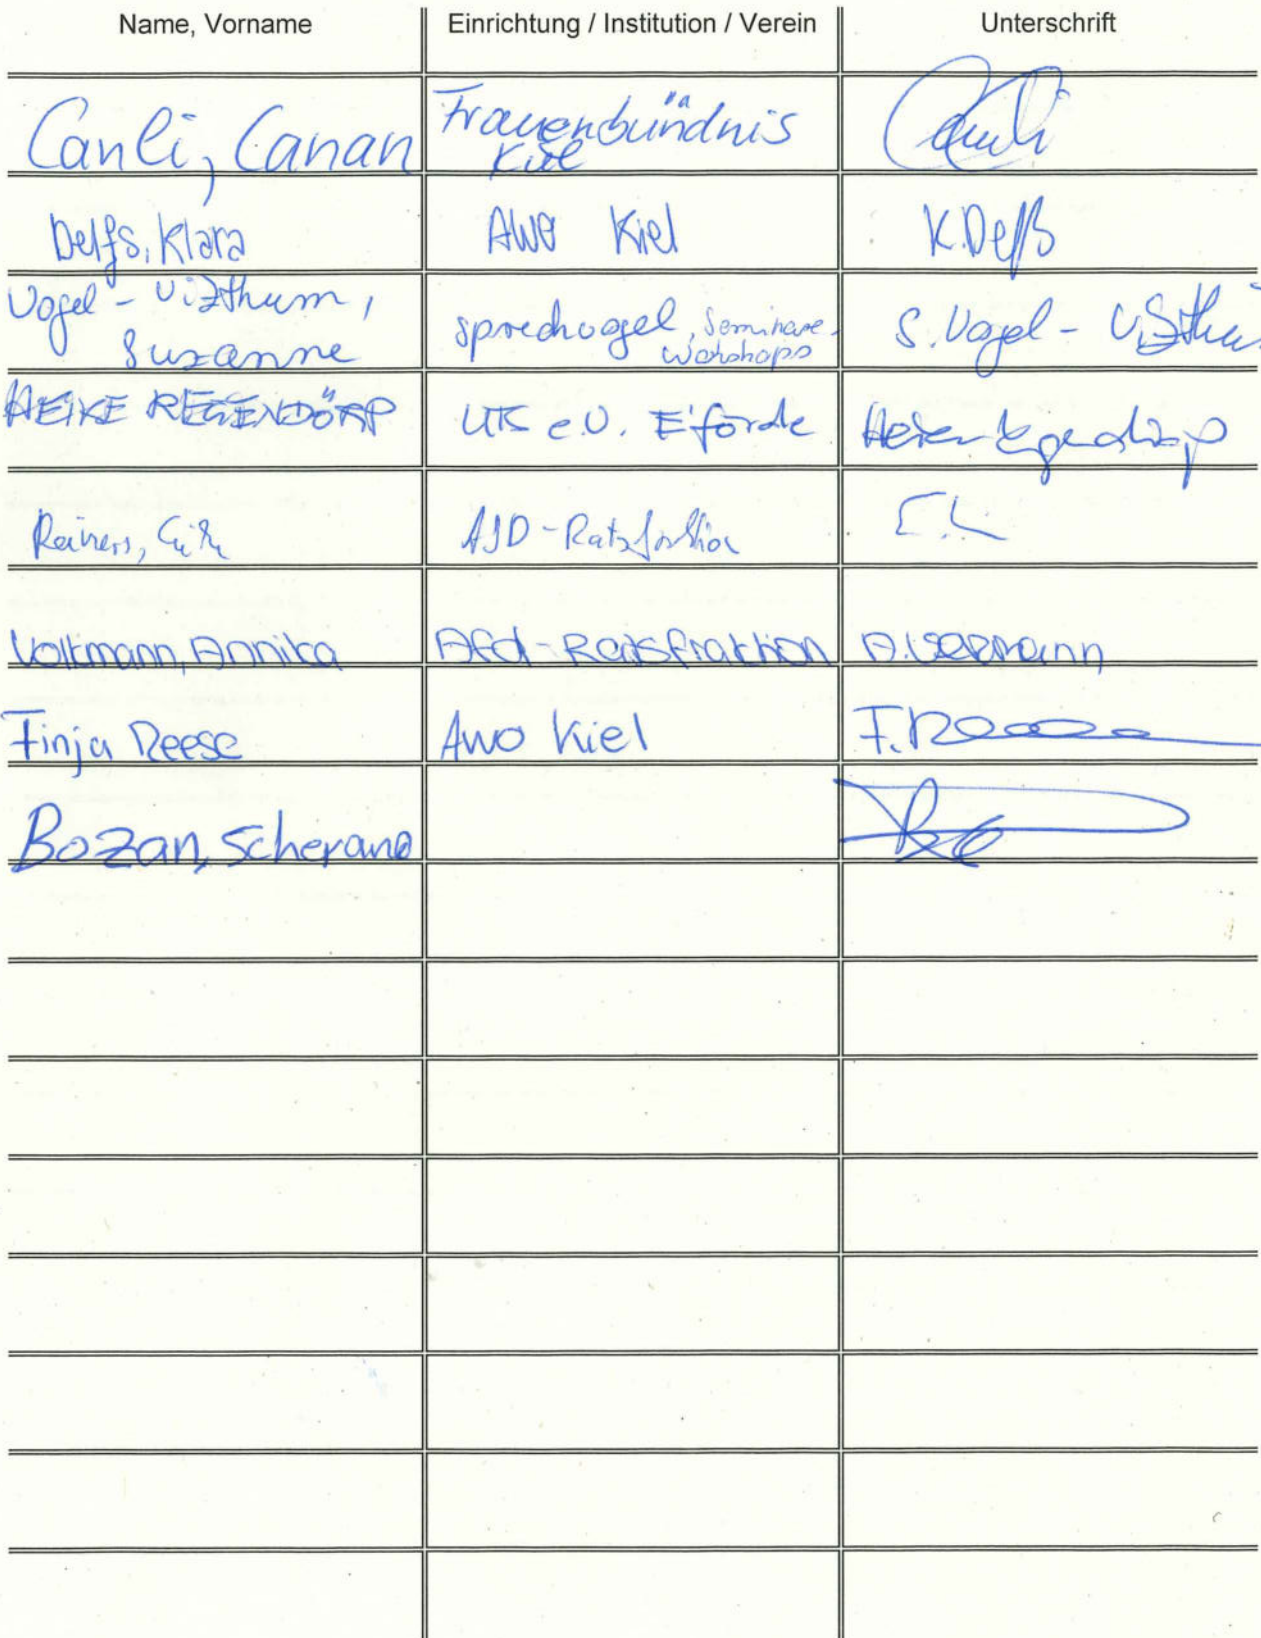 Name, Vorname Einrichtung / Institution / Verein Unterschrift
Canli, Canan Frauenbündnis Kiel Canli
Delfs, Klara AWO Kiel K. Delfs
Vogel - Vizthum, Suzanne sprechvogel, Seminare - Workshops S. Vogel - Vizthum
HEIKE REGENDÖRP UTS e.V. E'förde
Reiners, AfD - Ratsfraktion
Volkmann, Annika Afd - Ratsfraktion A. Volkmann
Finja Reese Awo Kiel F. Reese
Bozan, Scherand